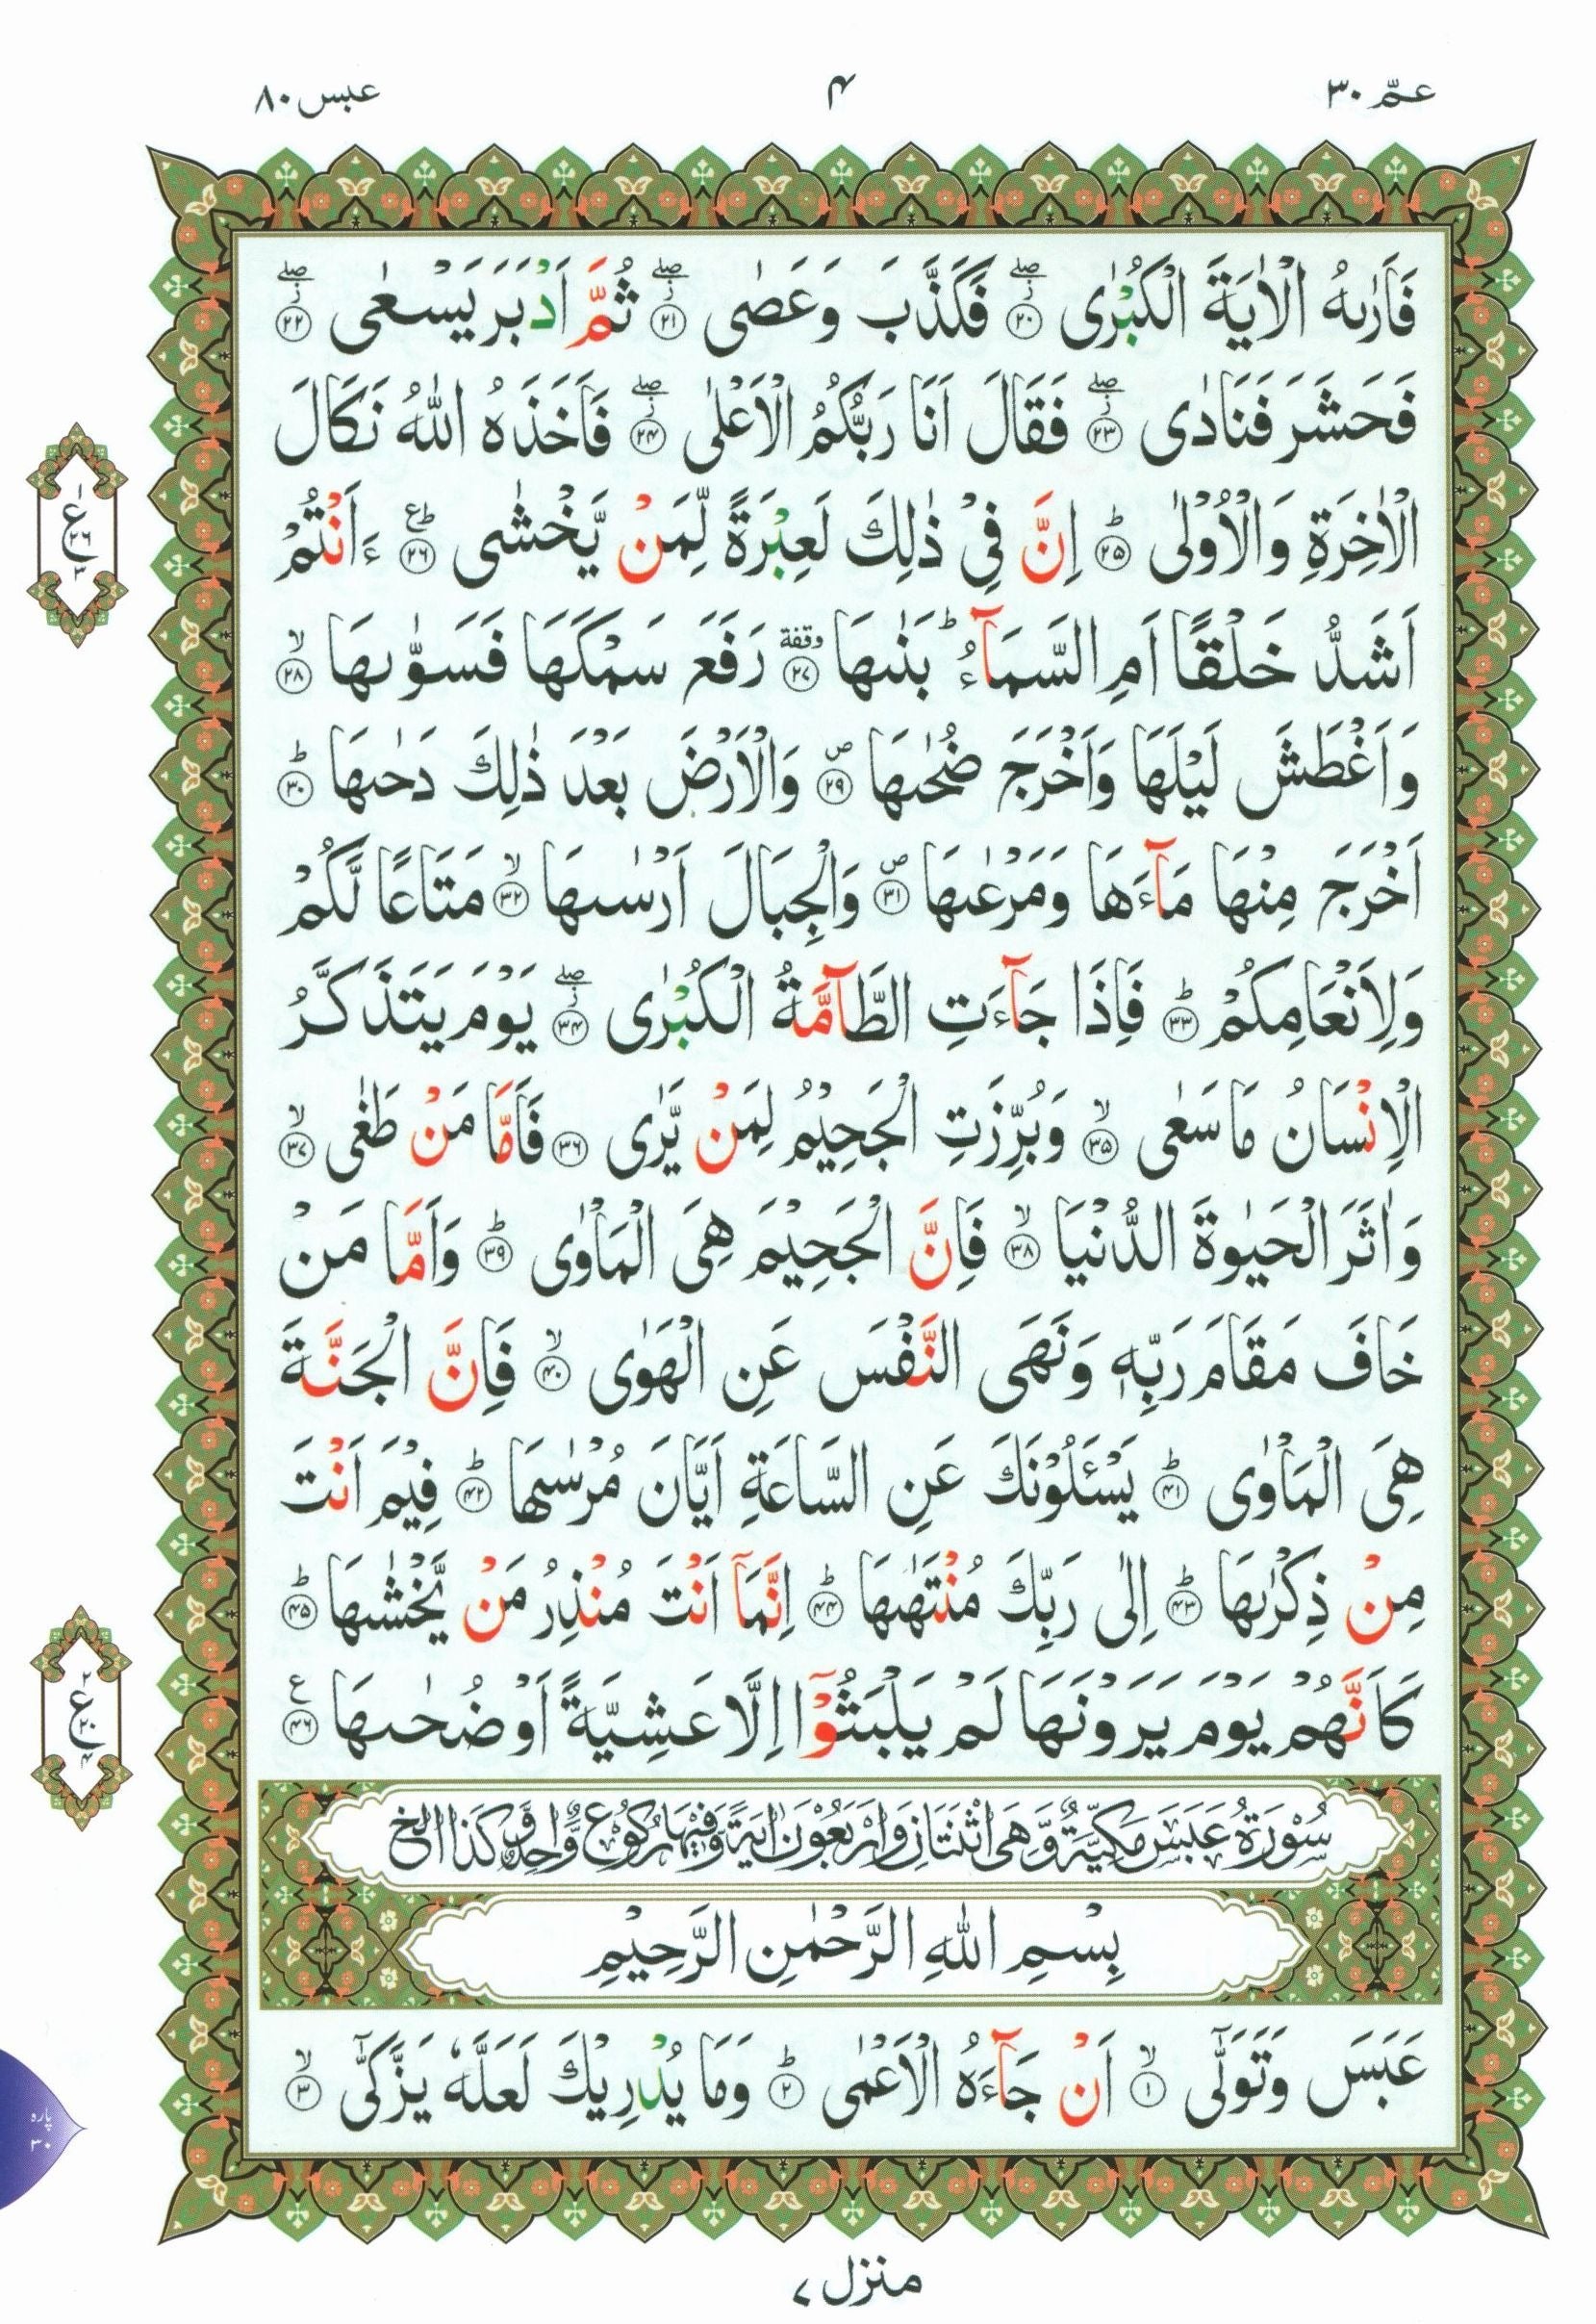 عـمّ ٣٠
۴
عبس ٨٠
فَاَرٰىهُ الْاٰيَةَ الْكُبْرٰى ۖ۝٢٠ فَكَذَّبَ وَعَصٰى ۖ۝٢١ ثُمَّ اَدْبَرَ يَسْعٰى ۖ۝٢٢
فَحَشَرَ فَنَادٰى ۖ۝٢٣ فَقَالَ اَنَا رَبُّكُمُ الْاَعْلٰى ۖ۝٢٤ فَاَخَذَهُ اللّٰهُ نَكَالَ
الْاٰخِرَةِ وَالْاُوْلٰى ؕ۝٢٥ اِنَّ فِيْ ذٰلِكَ لَعِبْرَةً لِّمَنْ يَّخْشٰى ؕع۝٢٦ ءَاَنْتُمْ
اَشَدُّ خَلْقًا اَمِ السَّمَآءُ ؕ بَنٰىهَا وقفة۝٢٧ رَفَعَ سَمْكَهَا فَسَوّٰىهَا ۙ۝٢٨
وَاَغْطَشَ لَيْلَهَا وَاَخْرَجَ ضُحٰىهَا ص۝٢٩ وَالْاَرْضَ بَعْدَ ذٰلِكَ دَحٰىهَا ؕ۝٣٠
اَخْرَجَ مِنْهَا مَآءَهَا وَمَرْعٰىهَا ص۝٣١ وَالْجِبَالَ اَرْسٰىهَا ۙ۝٣٢ مَتَاعًا لَّكُمْ
وَلِاَنْعَامِكُمْ ؕ۝٣٣ فَاِذَا جَآءَتِ الطَّآمَّةُ الْكُبْرٰى ۖ۝٣٤ يَوْمَ يَتَذَكَّرُ
الْاِنْسَانُ مَا سَعٰى ۙ۝٣٥ وَبُرِّزَتِ الْجَحِيْمُ لِمَنْ يَّرٰى ۝٣٦ فَاَمَّا مَنْ طَغٰى ۙ۝٣٧
وَاٰثَرَ الْحَيٰوةَ الدُّنْيَا ۙ۝٣٨ فَاِنَّ الْجَحِيْمَ هِيَ الْمَاْوٰى ؕ۝٣٩ وَاَمَّا مَنْ
خَافَ مَقَامَ رَبِّهٖ وَنَهَى النَّفْسَ عَنِ الْهَوٰى ۙ۝٤٠ فَاِنَّ الْجَنَّةَ
هِيَ الْمَاْوٰى ؕ۝٤١ يَسْـَٔلُوْنَكَ عَنِ السَّاعَةِ اَيَّانَ مُرْسٰىهَا ؕ۝٤٢ فِيْمَ اَنْتَ
مِنْ ذِكْرٰىهَا ؕ۝٤٣ اِلٰى رَبِّكَ مُنْتَهٰىهَا ؕ۝٤٤ اِنَّمَآ اَنْتَ مُنْذِرُ مَنْ يَّخْشٰىهَا ؕ۝٤٥
كَاَنَّهُمْ يَوْمَ يَرَوْنَهَا لَمْ يَلْبَثُوْٓا اِلَّا عَشِيَّةً اَوْ ضُحٰىهَا ع۝٤٦
سُوْرَةُ عَبَسَ مَكِّيَّةٌ وَّهِيَ اثْنَتَانِ وَاَرْبَعُوْنَ اٰيَةً وَّفِيْهَا رُكُوْعٌ وَّاحِدٌ وَّكَذَا الخ
بِسْمِ اللّٰهِ الرَّحْمٰنِ الرَّحِيْمِ
عَبَسَ وَتَوَلّٰٓى ۙ۝١ اَنْ جَآءَهُ الْاَعْمٰى ؕ۝٢ وَمَا يُدْرِيْكَ لَعَلَّهٗ يَزَّكّٰٓى ۙ۝٣
١
ع
٢٦
٣
٢
ع
٢٠
۴
پارہ
٣٠
منزل ٧